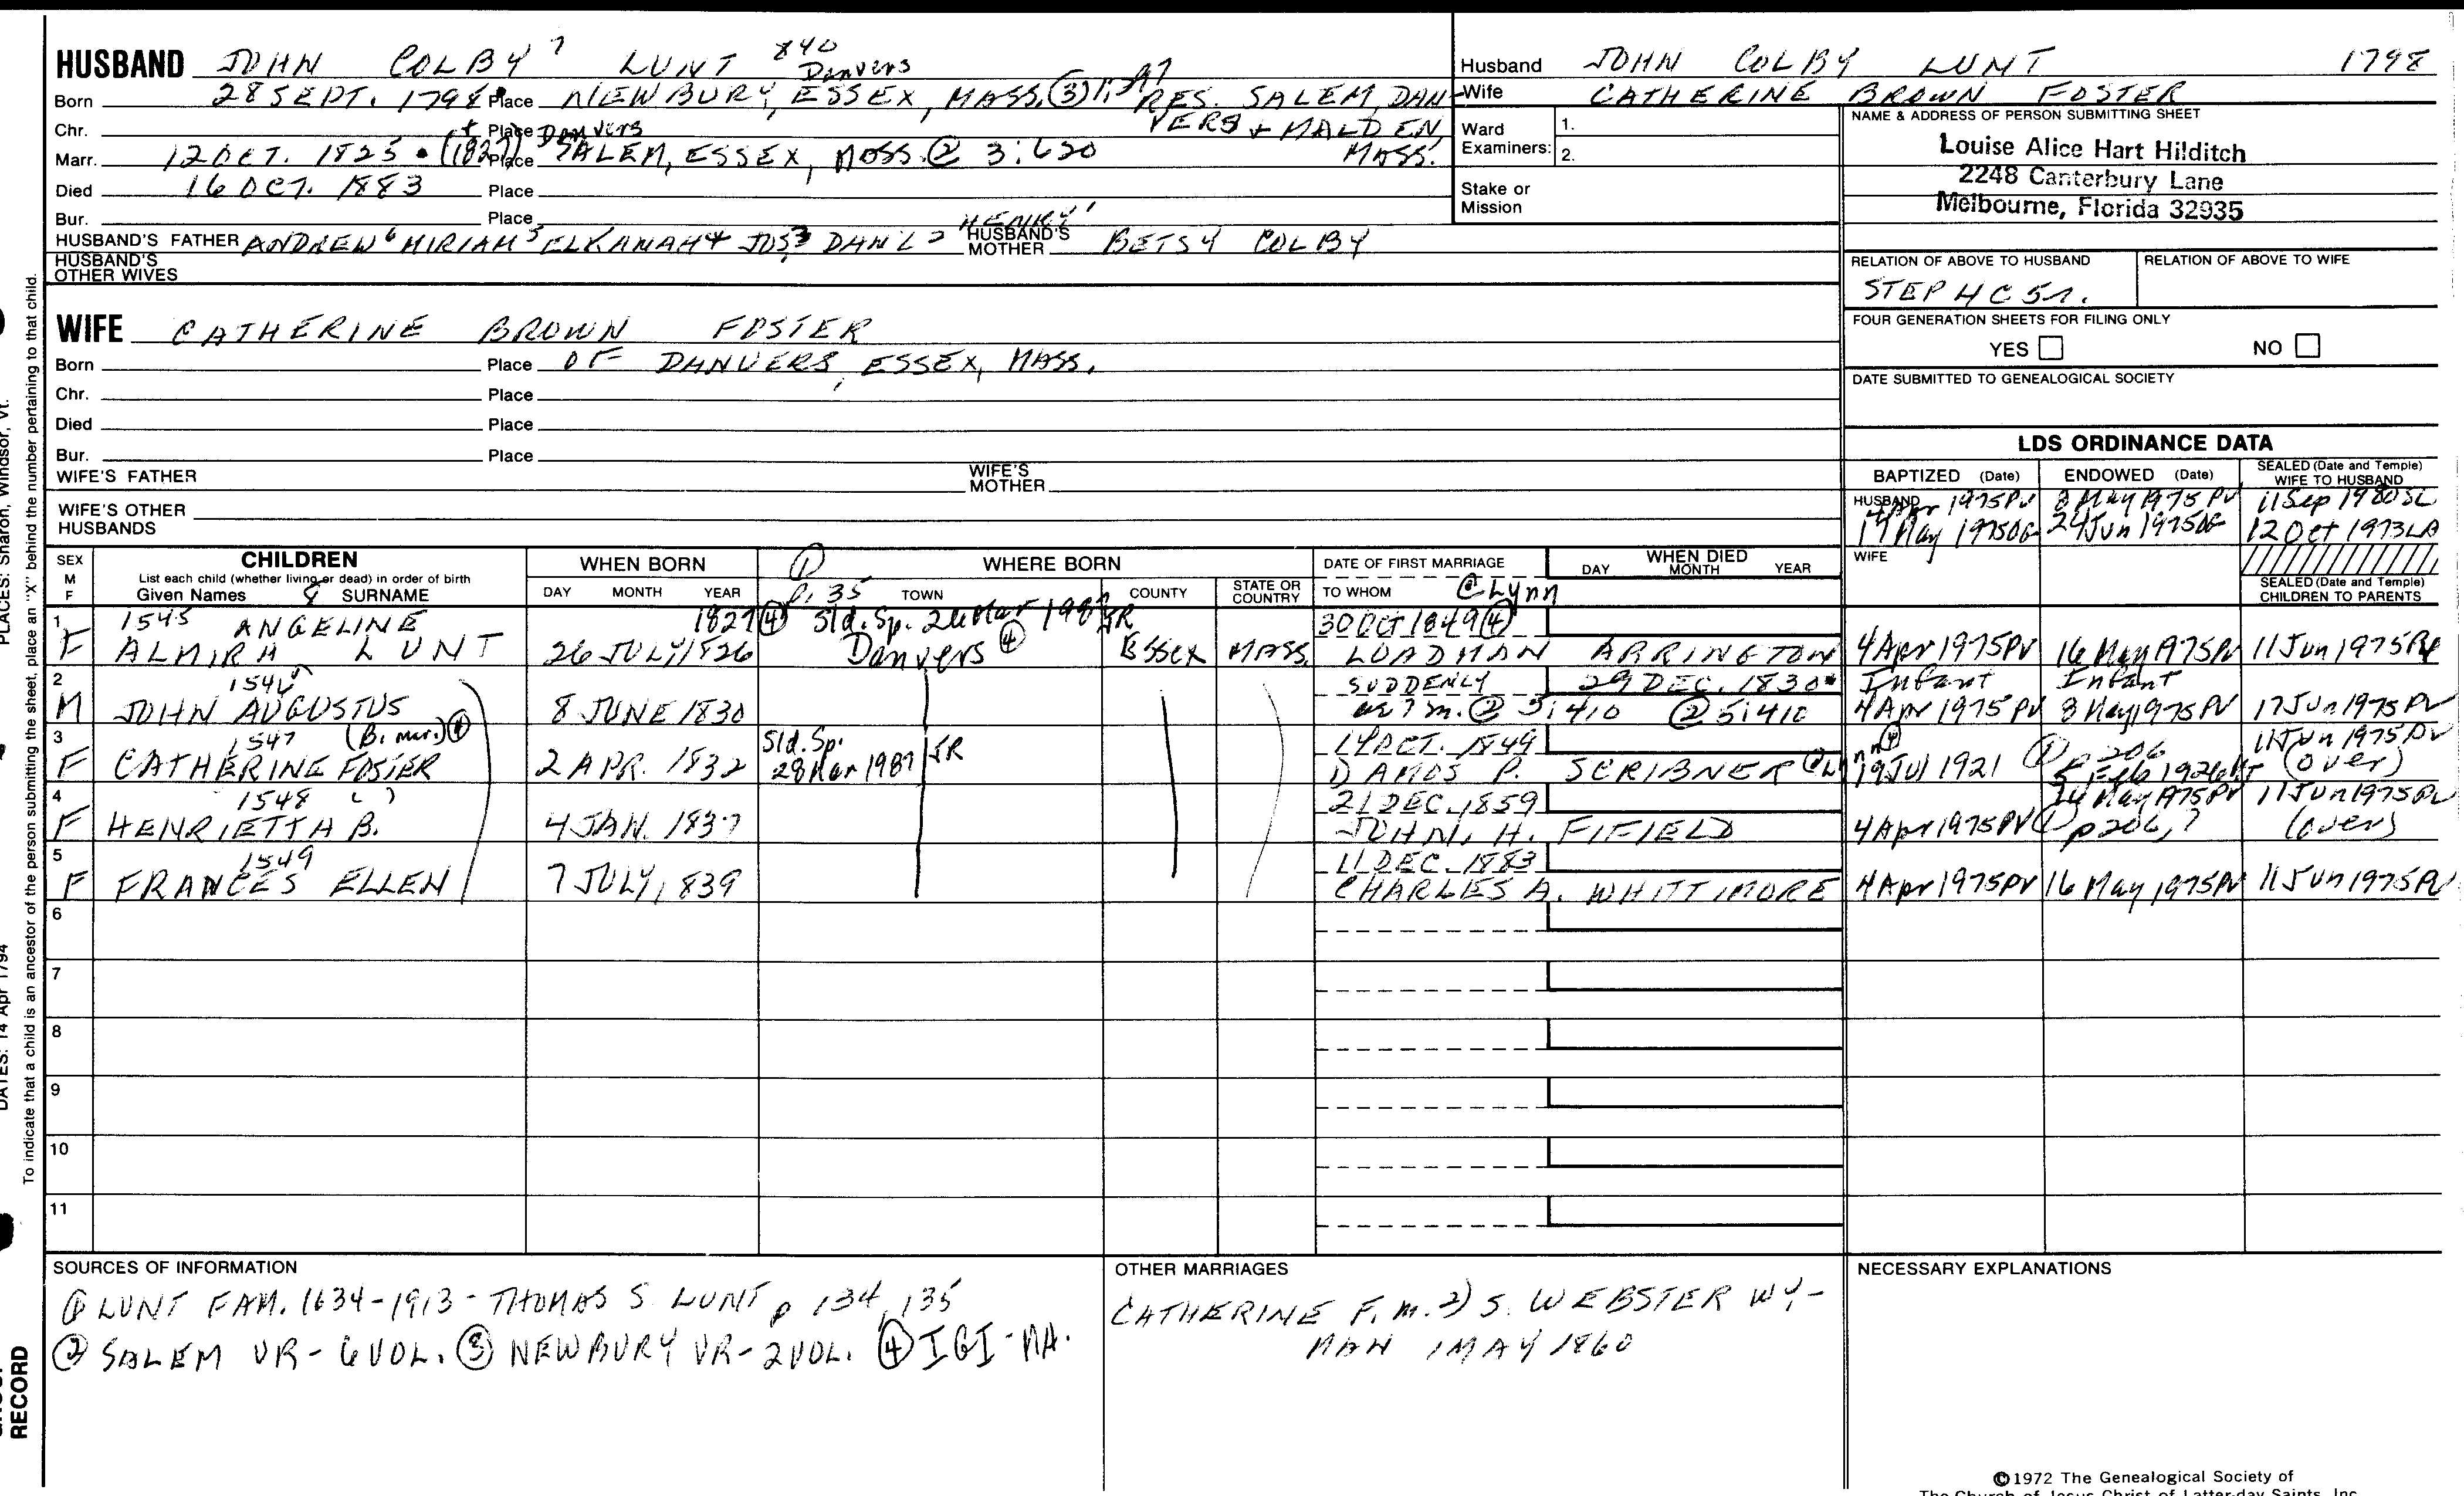 HUSBAND JOHN COLBY 7 LUNT 840
Danvers
Born 28 SEPT. 1798 Place NEWBURY, ESSEX, MASS. (3) RES. SALEM, DAN-
Chr. Place Danvers VERS + MALDEN,
Marr. 12 OCT. 1825 (1827) Place SALEM, ESSEX, MASS. @ 3:620 MASS.
Died 16 OCT. 1883 Place
Bur. Place
HENRY 1
HUSBAND'S FATHER ANDREW 6 MIRIAM 5 ELKANAH 4 JOS 3 DAN'L 2 HUSBAND'S MOTHER BETSY COLBY
HUSBAND'S OTHER WIVES
Husband JOHN COLBY LUNT 1798
Wife CATHERINE BROWN FOSTER
Ward Examiners: 1.
2.
Stake or Mission
NAME & ADDRESS OF PERSON SUBMITTING SHEET
Louise Alice Hart Hilditch
2248 Canterbury Lane
Melbourne, Florida 32935
RELATION OF ABOVE TO HUSBAND RELATION OF ABOVE TO WIFE
STEP H C 5
FOUR GENERATION SHEETS FOR FILING ONLY
YES NO
DATE SUBMITTED TO GENEALOGICAL SOCIETY
WIFE CATHERINE BROWN FOSTER
Born Place OF DANVERS, ESSEX, MASS.
Chr. Place
Died Place
Bur. Place
WIFE'S FATHER WIFE'S MOTHER
WIFE'S OTHER HUSBANDS
LDS ORDINANCE DATA
BAPTIZED (Date) ENDOWED (Date) SEALED (Date and Temple) WIFE TO HUSBAND
HUSBAND 4 Apr 1975PV 8 May 1975 PV 11 Sep 1980 SL
17 May 1975OG 24 Jun 1975OG 12 Oct 1973LA
WIFE
SEALED (Date and Temple) CHILDREN TO PARENTS
SEX M F
CHILDREN
List each child (whether living or dead) in order of birth
Given Names & SURNAME
WHEN BORN
DAY MONTH YEAR
(1) p. 35
WHERE BORN
TOWN COUNTY STATE OR COUNTRY
DATE OF FIRST MARRIAGE
TO WHOM @ Lynn
WHEN DIED
DAY MONTH YEAR
1 1545 ANGELINE 1827 (4) Sld. Sp. JR 30 OCT 1849 (4)
F ALMIRA LUNT 26 JULY 1826 Danvers (4) Essex MASS LOADMAN ARRINGTON 4 Apr 1975PV 16 May 1975PV 11 Jun 1975PV
2 1546 SUDDENLY 29 DEC. 1830 Infant Infant
M JOHN AUGUSTUS 8 JUNE 1830 ae 7 m. @ 5:410 (2) 5:410 4 Apr 1975 PV 8 May 1975 PV 17 Jun 1975 PV
3 1547 (B. mar.) (4) Sld. Sp. 14 OCT. 1849 11 Jun 1975 PV
F CATHERINE FOSTER 2 APR. 1832 28 Mar 1987 JR D AMOS P. SCRIBNER @ Lynn (4) 19 Jul 1921 (1) p 206 5 Feb 1926 (over)
4 1548 ( ) 21 DEC. 1859 14 May 1975 PV 11 Jun 1975 PV
F HENRIETTA B. 4 JAN. 1837 JOHN H. FIFIELD 4 Apr 1975 PV (1) p 206, ? (over)
5 1549 11 DEC. 1883
F FRANCES ELLEN 7 JULY 1839 CHARLES A. WHITTIMORE 4 Apr 1975PV 16 May 1975PV 11 Jun 1975 PV
6
7
8
9
10
11
SOURCES OF INFORMATION
(1) LUNT FAM. 1634-1913 - THOMAS S. LUNT p 134, 135
(2) SALEM VR - 6 VOL. (3) NEWBURY VR - 2 VOL. (4) IGI - MA.
OTHER MARRIAGES
CATHERINE F. m. 2) S. WEBSTER WY-
MAN 1 MAY 1860
NECESSARY EXPLANATIONS
©1972 The Genealogical Society of
The Church of Jesus Christ of Latter-day Saints, Inc.
To indicate that a child is an ancestor of the person submitting the sheet, place an "X" behind the number pertaining to that child.
PLACES: Sharon, Windsor, Vt.
DATES: 14 Apr 1794
RECORD